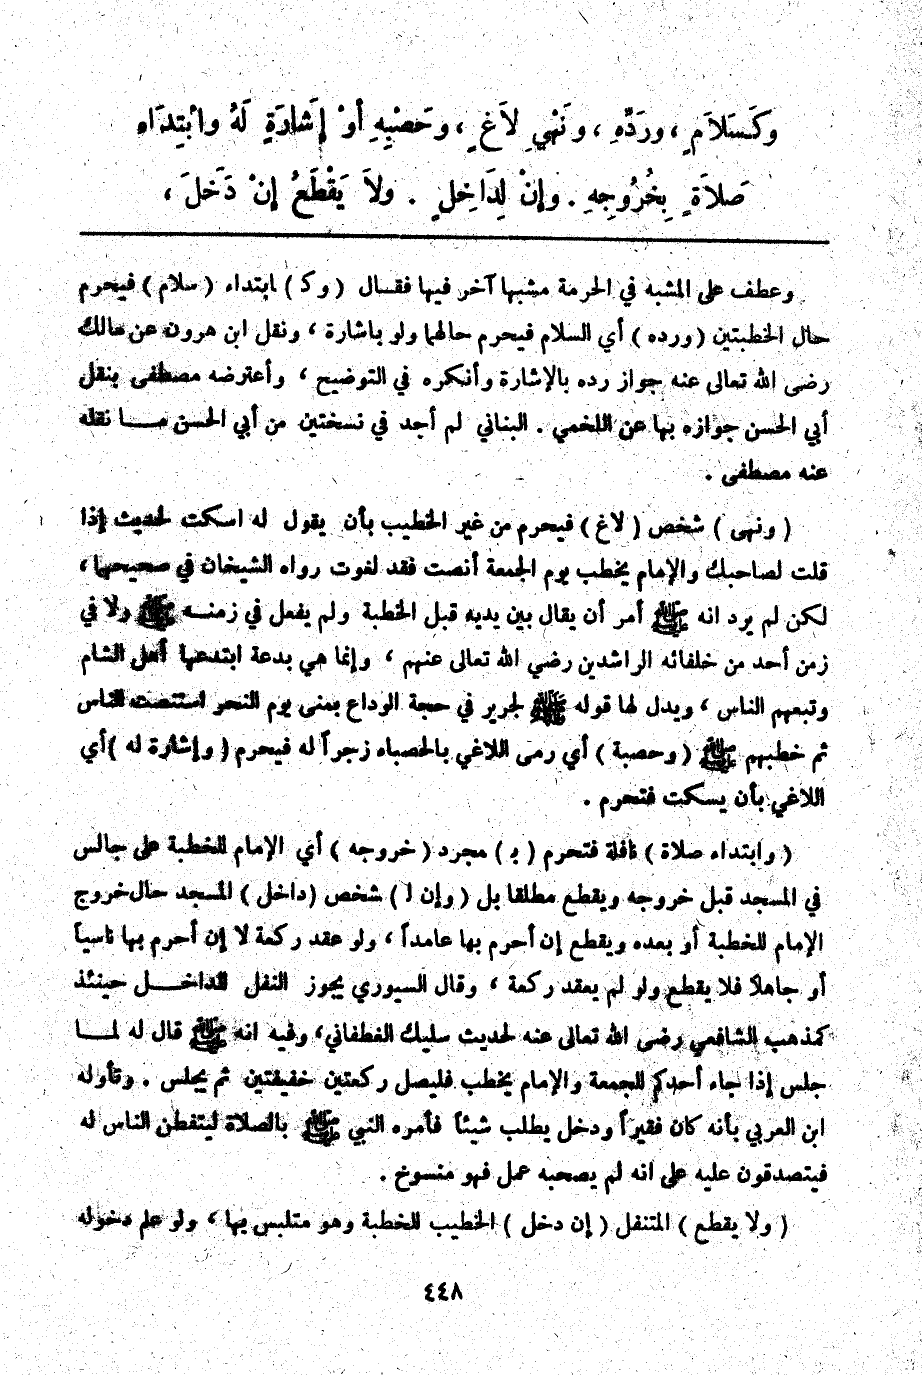 وَكَسَلَامٍ ، وَرَدِّهِ ، وَنَهْيِ لَاغٍ ، وَحَصْبِهِ أَوْ إِشَارَةٍ لَهُ وَابْتِدَاءِ
صَلَاةٍ بِخُرُوجِهِ . وإِنْ لِدَاخِلٍ . ولَا يَقْطَعُ إِنْ دَخَلَ ،
وعطف على المشبه في الحرمة مشبها آخر فيها فقال ( وكـ ) ابتداء ( سلام ) فيحرم
حال الخطبتين ( ورده ) أي السلام فيحرم حالهما ولو باشارة ، ونقل ابن هرون عن مالك
رضى الله تعالى عنه جواز رده بالإشارة وأنكره في التوضيح ، وأعترضه مصطفى بنقل
أبي الحسن جوازه بها عن اللخمي . البناني لم أجد في نسختين من أبي الحسن مـــا نقله
عنه مصطفى .
( ونهى ) شخص ( لاغ ) فيحرم من غير الخطيب بأن يقول له اسكت لحديث إذا
قلت لصاحبك والإمام يخطب يوم الجمعة أنصت فقد لغوت رواه الشيخان في صحيحهما ،
لكن لم يرد انه ﷺ أمر أن يقال بين يديه قبل الخطبة ولم يفعل في زمنــه ﷺ ولا في
زمن أحد من خلفائه الراشدين رضي الله تعالى عنهم ، وإنما هي بدعة ابتدعها أهل الشام
وتبعهم الناس ، ويدل لها قوله ﷺ لجرير في حجة الوداع بمنى يوم النحر استنصت الناس
ثم خطبهم ﷺ ( وحصبة ) أي رمى اللاغي بالحصباء زجراً له فيحرم ( وإشارة له ) أي
اللاغي بأن يسكت فتحرم .
( وابتداء صلاة ) نافلة فتحرم ( بـ ) مجرد ( خروجه ) أي الإمام للخطبة على جالس
في المسجد قبل خروجه ويقطع مطلقا بل ( وإن لـ ) شخص ( داخل ) المسجد حال خروج
الإمام للخطبة أو بعده ويقطع إن أحرم بها عامداً ، ولو عقد ركعة لا إن أحرم بها ناسياً
أو جاهلاً فلا يقطع ولو لم يعقد ركعة ، وقال السيوري يجوز النفل للداخـــل حينئذ
كمذهب الشافعي رضى الله تعالى عنه لحديث سليك الغطفاني، وفيه انه ﷺ قال له لمــا
جلس إذا جاء أحدكم للجمعة والإمام يخطب فليصل ركعتين خفيفتين ثم يجلس . وتأوله
ابن العربي بأنه كان فقيراً ودخل يطلب شيئاً فأمره النبي ﷺ بالصلاة ليتفطن الناس له
فيتصدقون عليه على انه لم يصحبه عمل فهو منسوخ .
( ولا يقطع ) المتنفل ( إن دخل ) الخطيب للخطبة وهو متلبس بها ، ولو علم دخوله
٤٤٨